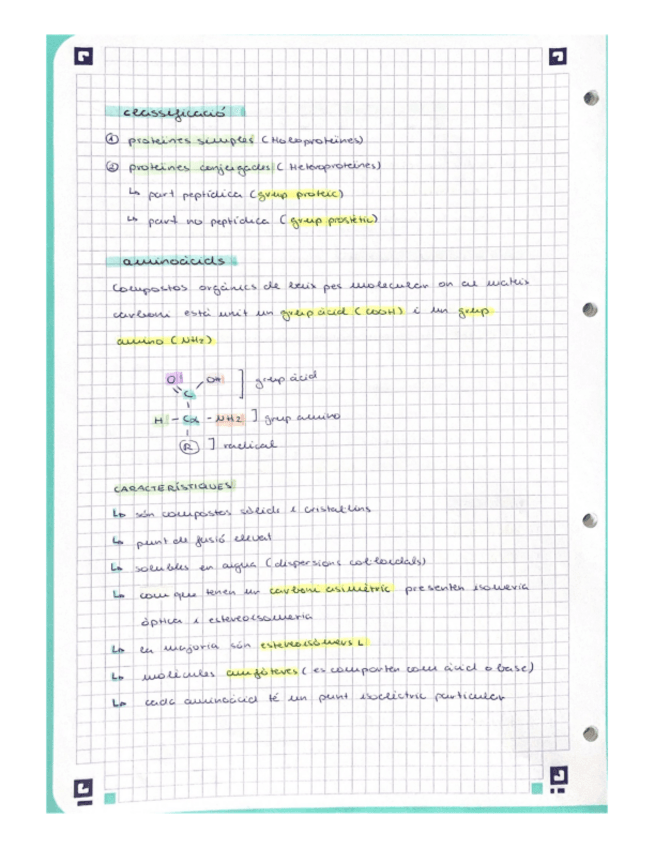 classificació
① proteïnes simples (Holoproteïnes)
② proteïnes conjugades (Heteroproteïnes)
↳ part peptídica (grup proteic)
↳ part no peptídica (grup prostètic)
aminoàcids
Compostos orgànics de baix pes molecular on al mateix
carboni està unit un grup àcid (COOH) i un grup
amino (NH2)
O OH ] grup àcid
C
H - Cα - NH2 ] grup amino
R ] radical
CARACTERÍSTIQUES
↳ són compostos sòlids i cristal·lins
↳ punt de fusió elevat
↳ solubles en aigua (dispersions col·loidals)
↳ com que tenen un carboni asimètric presenten isomeria
òptica i estereoisomeria
↳ la majoria són estereoisòmers L
↳ molècules amfòteres (es comporten com àcid o base)
↳ cada aminoàcid té un punt isoelèctric particular